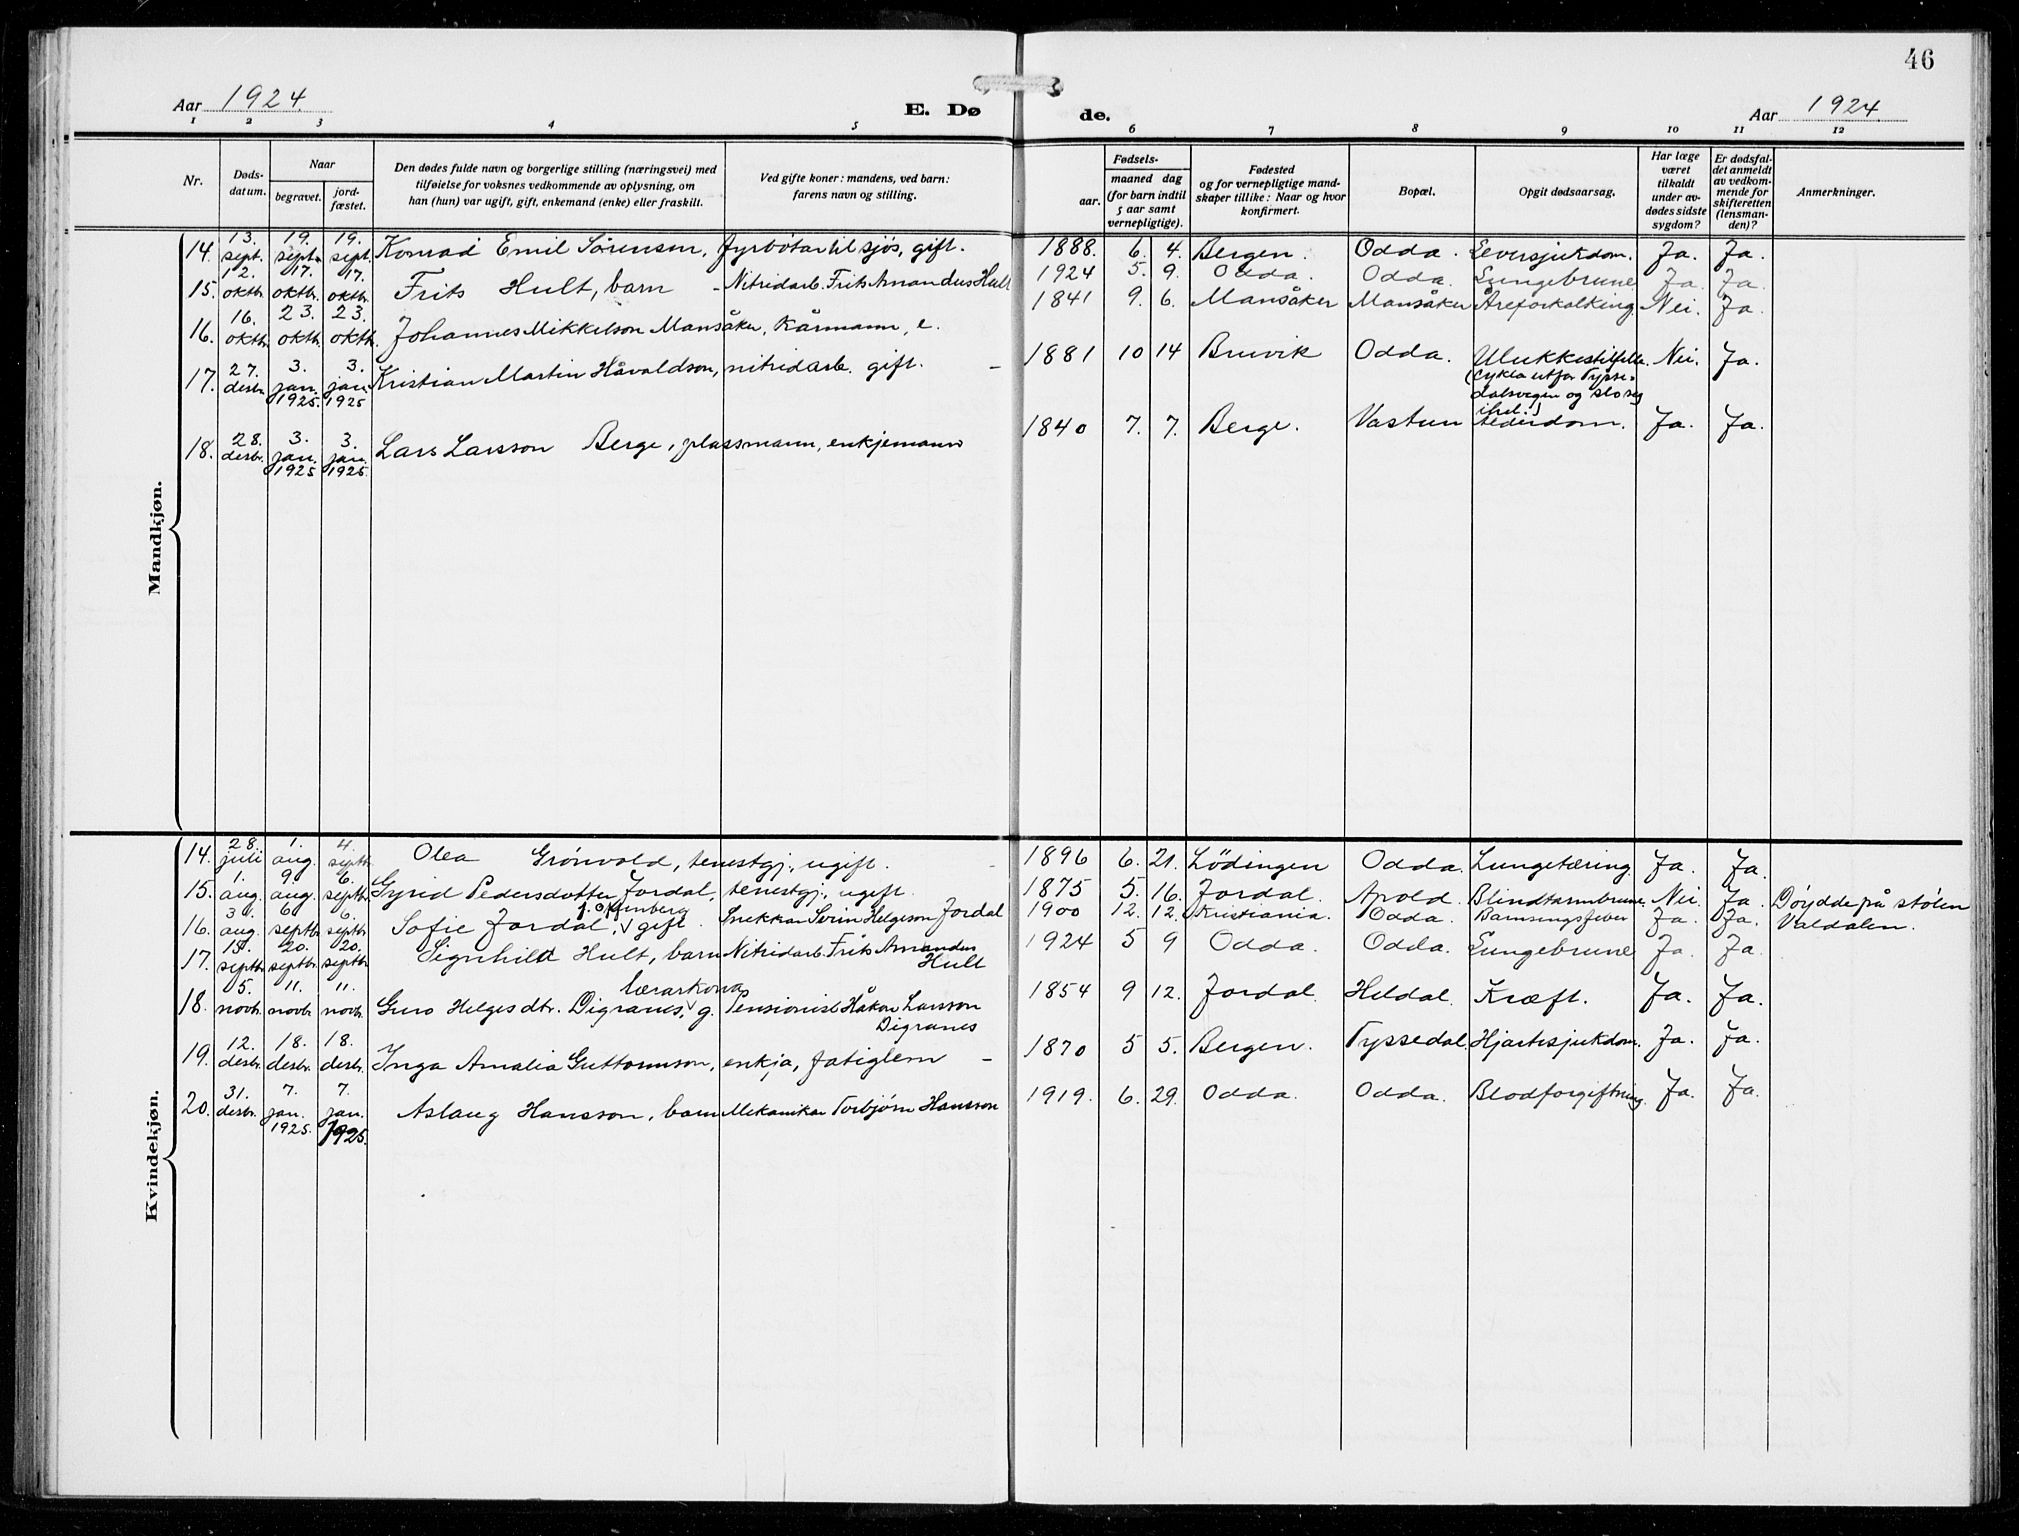 46
Aar 1924
E. Dø
de.
Aar 1924
1 2 3 4 5 6 7 8 9 10 11 12
Nr.
Døds-
datum.
Naar
begravet.
jord-
fæstet.
Den dødes fulde navn og borgerlige stilling (næringsvei) med
tilføielse for voksnes vedkommende av oplysning, om
han (hun) var ugift, gift, enkemand (enke) eller fraskilt.
Ved gifte koner: mandens, ved barn:
farens navn og stilling.
Fødsels-
aar.
maaned dag
(for barn indtil
5 aar samt
vernepligtige).
Fødested
og for vernepligtige mand-
skaper tillike: Naar og hvor
konfirmert.
Bopæl.
Opgit dødsaarsag.
Har læge
været
tilkaldt
under av-
dødes sidste
sygdom?
Er dødsfal-
det anmeldt
av vedkom-
mende for
skifteretten
(lensman-
den)?
Anmerkninger.
Mandkjøn.
14. 13. sept. 19. sept. 19. sept. Konrad Emil Sørenson, fyrbøtar til sjøs, gift. 1888. 6. 4. Bergen. Odda. Leversjukdom. Ja. Ja.
15. 12. oktb. 17. oktb. 17. oktb. Frits Hult, barn - Nitridarb. Frits Amandus Hult 1924 5. 9. Odda. Odda. Lungebrune Ja. Ja.
16. 16. oktb. 23. oktb. 23. oktb. Johannes Mikkelson Mansåker, kårmann, e. 1841 9. 6. Mansåker Mansåker Åreforkalking. Nei. Ja.
17. 27. desbr. 3. jan. 1925. 3. jan. 1925 Kristian Martin Håvaldson, nitridarb. gift. - 1881 10 14 Bruvik Odda. Ulukkestilfelle. Nei. Ja.
(cykla utfor Tysse-
dalsvegen og slo seg
ihel.)
18. 28. desbr. 3. jan. 1925 3. jan. 1925. Lars Larsson Berge, plassmann, enkjemann 1840 7. 7. Berge. Vastun Alderdom. Ja. Ja.
Kvindekjøn.
14. 28. juli 1. aug. 4. septbr. Olea Grønvold, tenestgj., ugift. 1896 6. 21. Lödingen Odda. Lungetæring Ja. Ja.
15. 1. aug. 9. aug. 6. septbr. Gyrid Pedersdotter Jordal, tenestgj., ugift. 1875 5. 16. Jordal. Apold. Blindtarmbrune. Nei Ja. Døydde på stølen
Valdalen.
16. aug. 6. septbr. 6. septbr. Sofie Jordal, gift. Snekkar Serin Helgeson Jordal 1900 12. 12. Kristiania. Odda. Barnsengsfeber Ja. Ja.
17. 15. septbr. 20. septbr. 20. septbr. Signhild Hult, barn Nitridarb. Frits Amandus
Hult 1924 5 9 Odda. Odda. Lungebrune Ja. Ja.
18. 5. novbr. 11. novbr. 11. novbr. Guro Helgesdtr. Digranes, lærarkona g. Pensionist Håkon Larsson
Digranes 1854 9 12. Jordal. Hildal. Kræft. Ja. Ja.
19. 12. desbr. 18. desbr. 18. desbr. Inga Amalia Guttormson, enkja, fatiglem - 1870 5 5. Bergen. Tyssedal. Hjartesjukdom. Ja. Ja.
20. 31. desbr. 7. jan. 1925. 7. jan. 1925. Aslaug Hansson, barn Mekanikar Torbjørn Hansson 1919. 6. 29. Odda. Odda. Blodforgiftning. Ja. Ja.